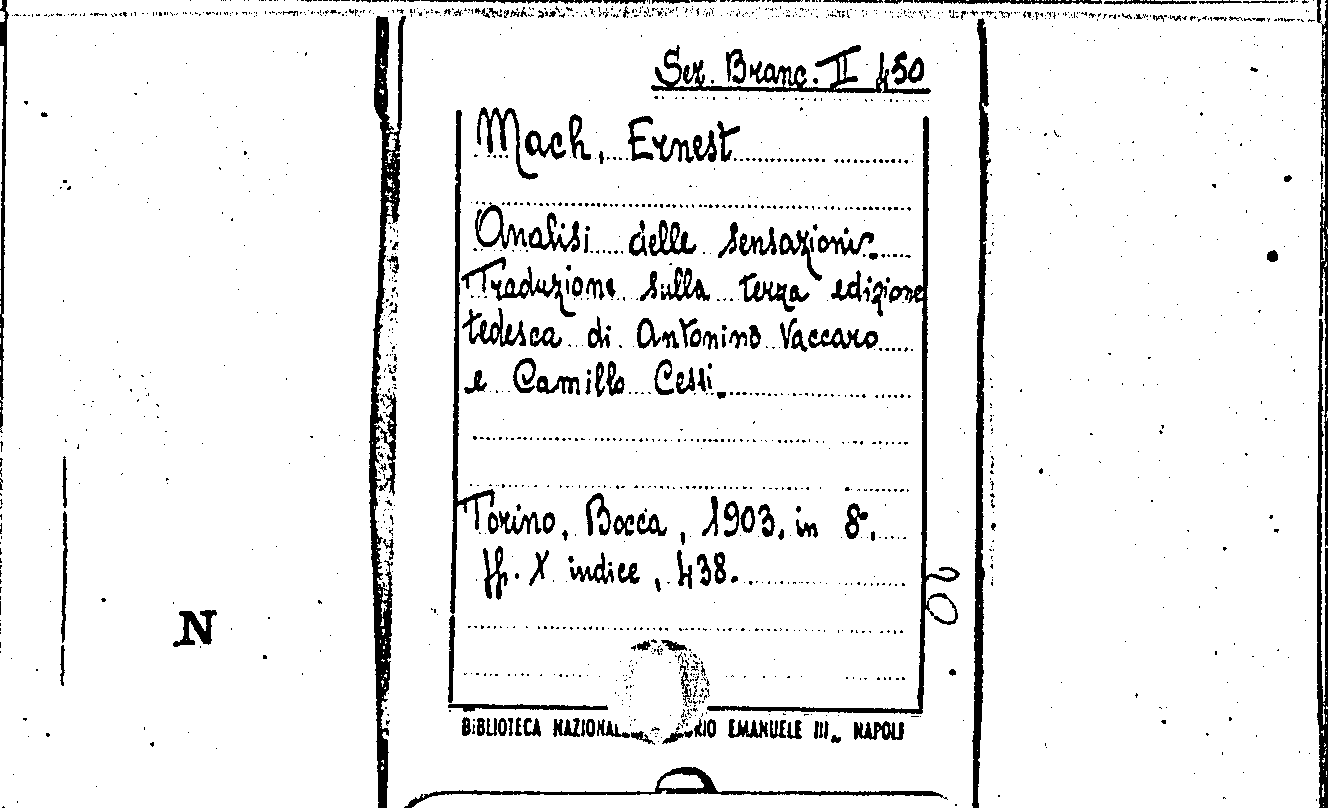 Sez. Branc. II 450
Mach, Ernest
Analisi delle sensazioni.
Traduzione sulla terza edizione
tedesca di Antonino Vaccaro
e Camillo Cessi.
Torino, Bocca, 1903, in 8°.
pp. X indice, 438.
20
N
BIBLIOTECA NAZIONALE EMANUELE III_ NAPOLI